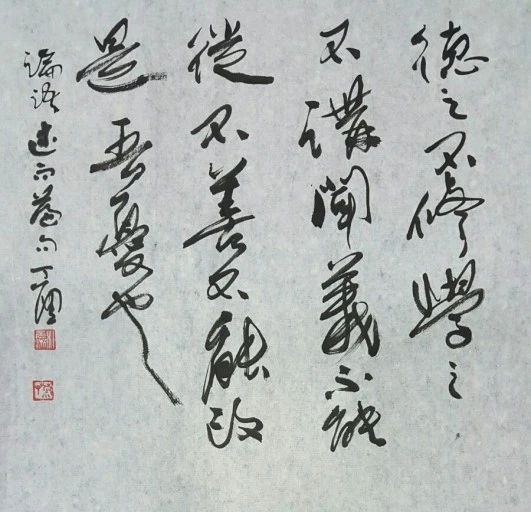 德之不修學之
不講聞義不能
徙不善不能改
是吾憂也
論語述而篇句丁酉